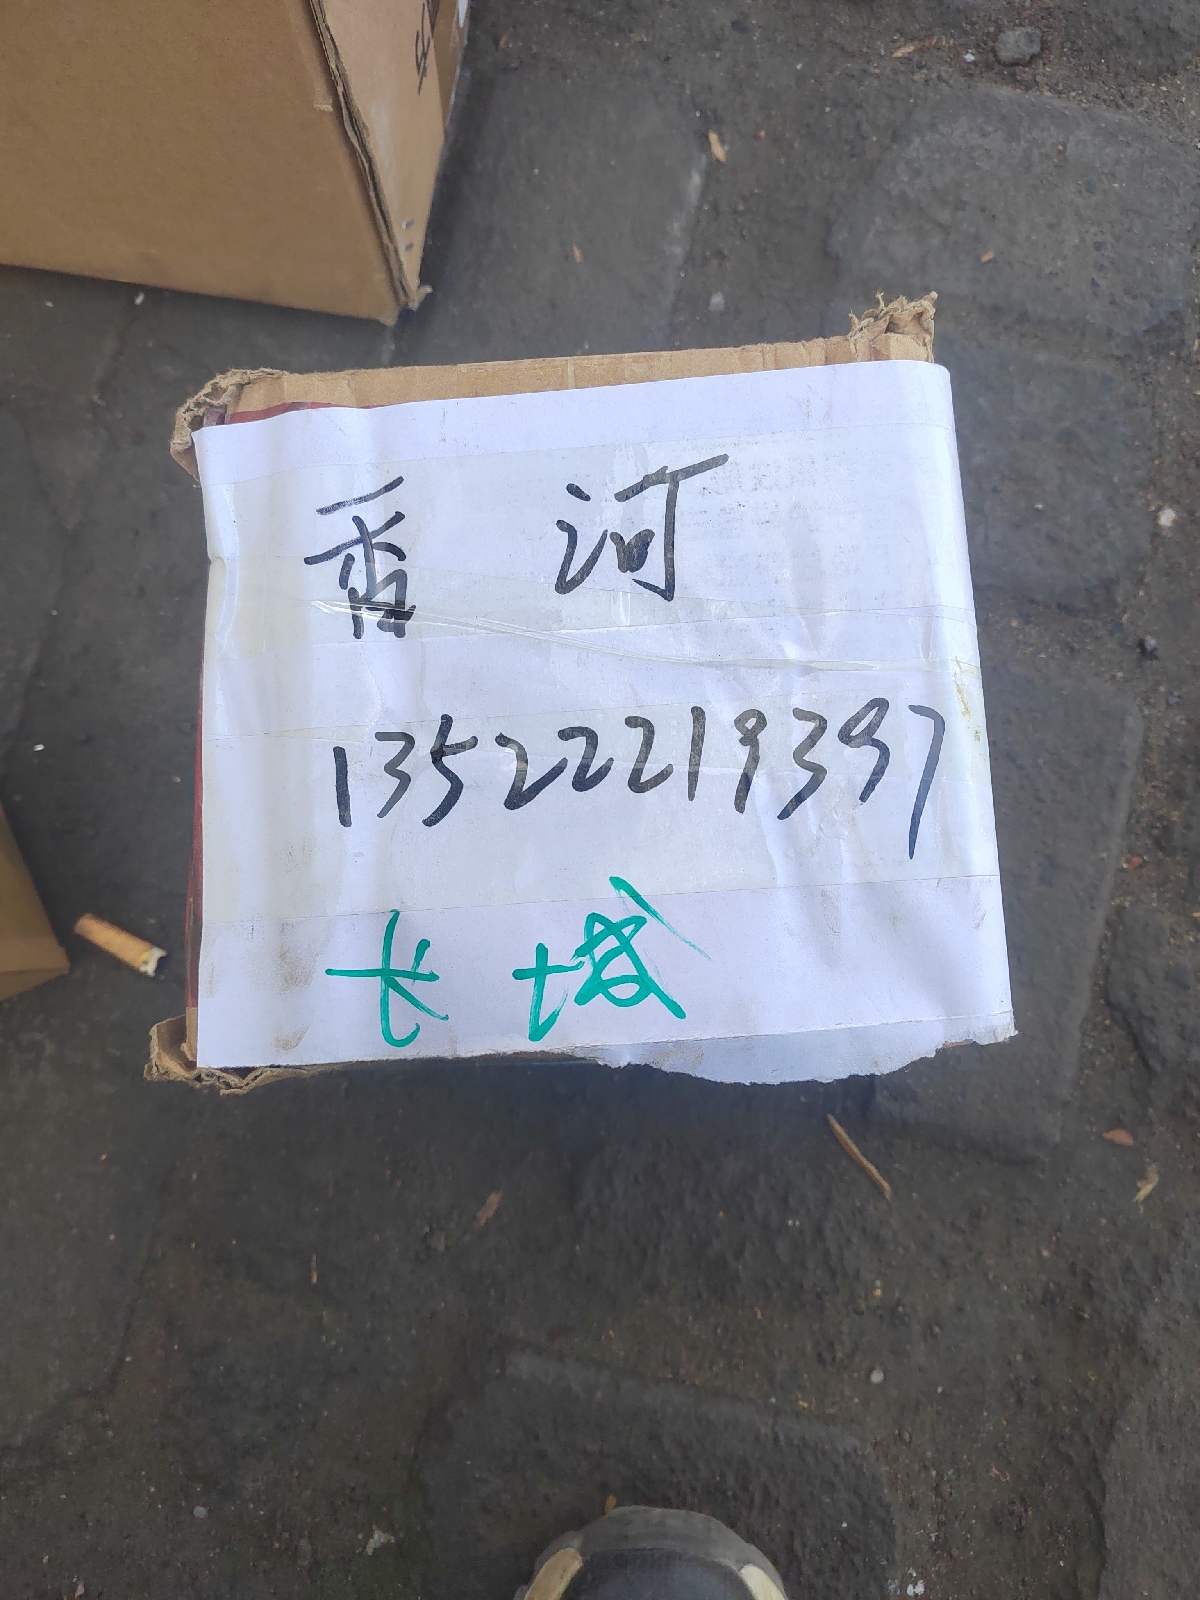 香河
13522219397
长城